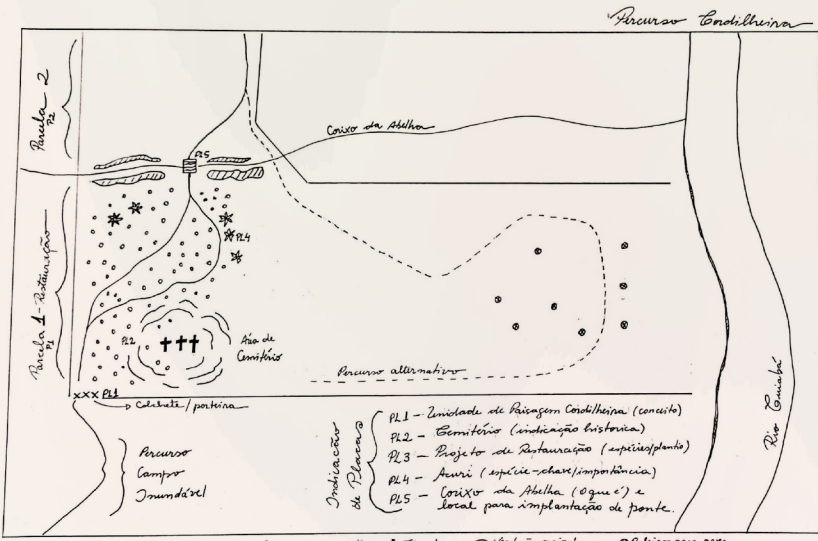 Percurso Cordilheira
Parcela 2
P2
Corixo da Abelha
PL5
PL4
Parcela 1 - Restauração
P1
PL2
Área de
Cemitério
Percurso alternativo
xxx PL1
Colchete / porteira
Rio Cuiabá
Percurso
Campo
Inundável
Indicação
de Placas
PL1 - Unidade de Paisagem Cordilheira (conceito)
PL2 - Cemitério (indicação histórica)
PL3 - Projeto de Restauração (espécies/plantio)
PL4 - Acuri (espécie-chave/importância)
PL5 - Corixo da Abelha (o que é) e
local para implantação de ponte.